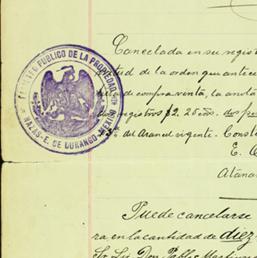 REGISTRO PUBLICO DE LA PROPIEDAD
NAZAS-E. DE DURANGO-MEXICO
Cancelada en su regist
tud de la orden que antece
de compraventa, la anota
registro $2.25
del Arancel vigente. Const
E. C
Puede cancelarse
ra en la cantidad de diez
Sr Lic Don Pablo Martinez